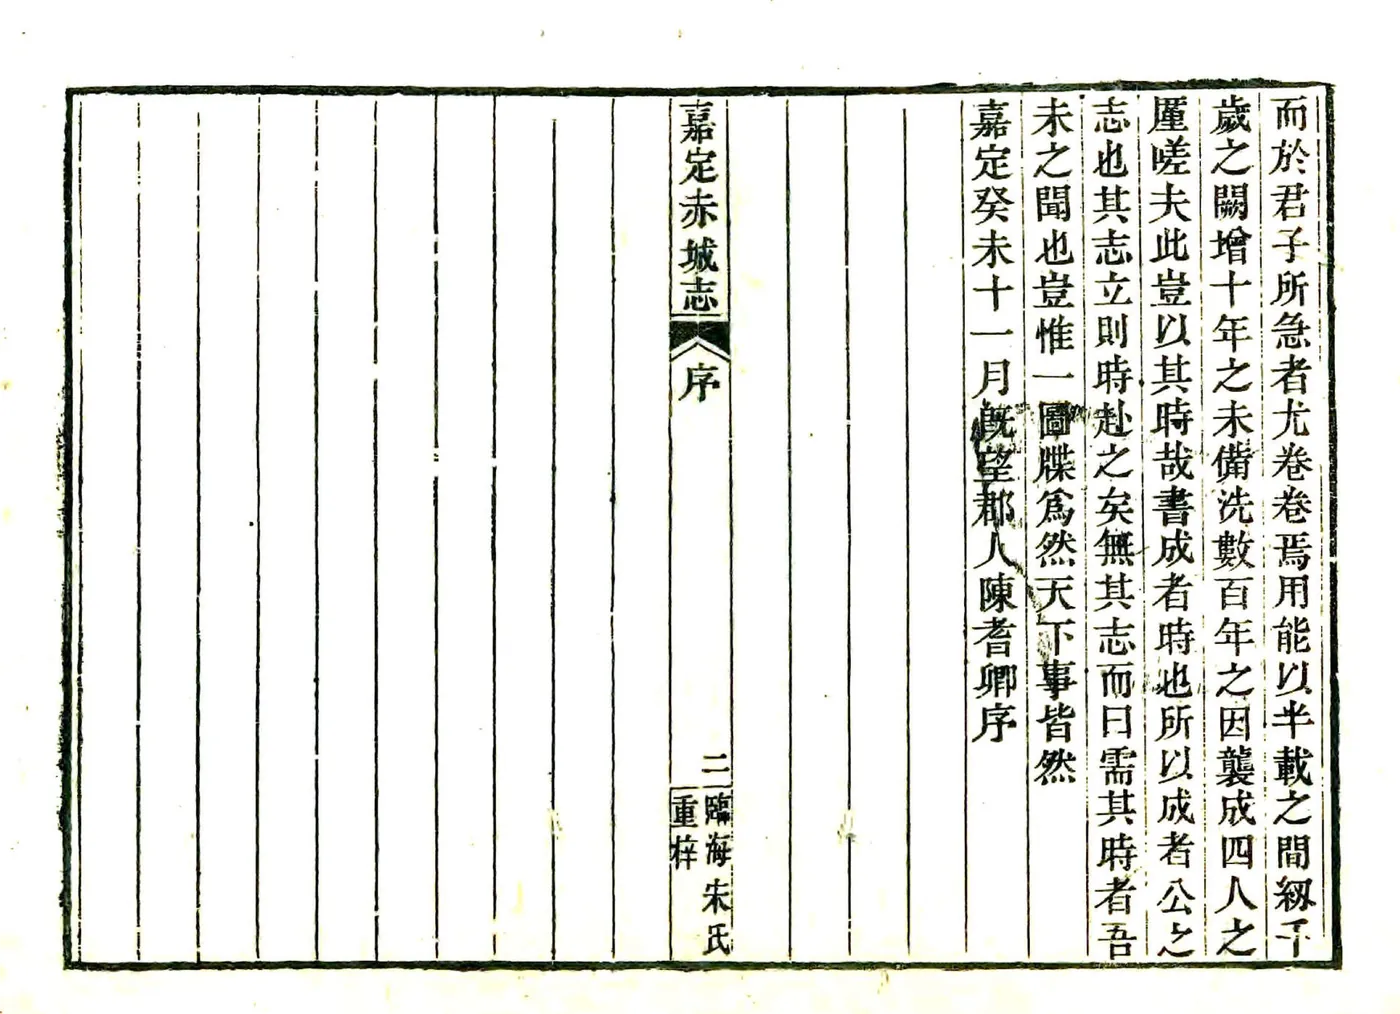 而於君子所急者尤卷卷焉用能以半載之間紉千
歲之闕增十年之未備洗數百年之因襲成四人之
厪嗟夫此豈以其時哉書成者時也所以成者公之
志也其志立則時赴之矣無其志而曰需其時者吾
未之聞也豈惟一圖牒爲然天下事皆然
嘉定癸未十一月既望郡人陳耆卿序
嘉定赤城志
序
二
臨海宋氏
重梓